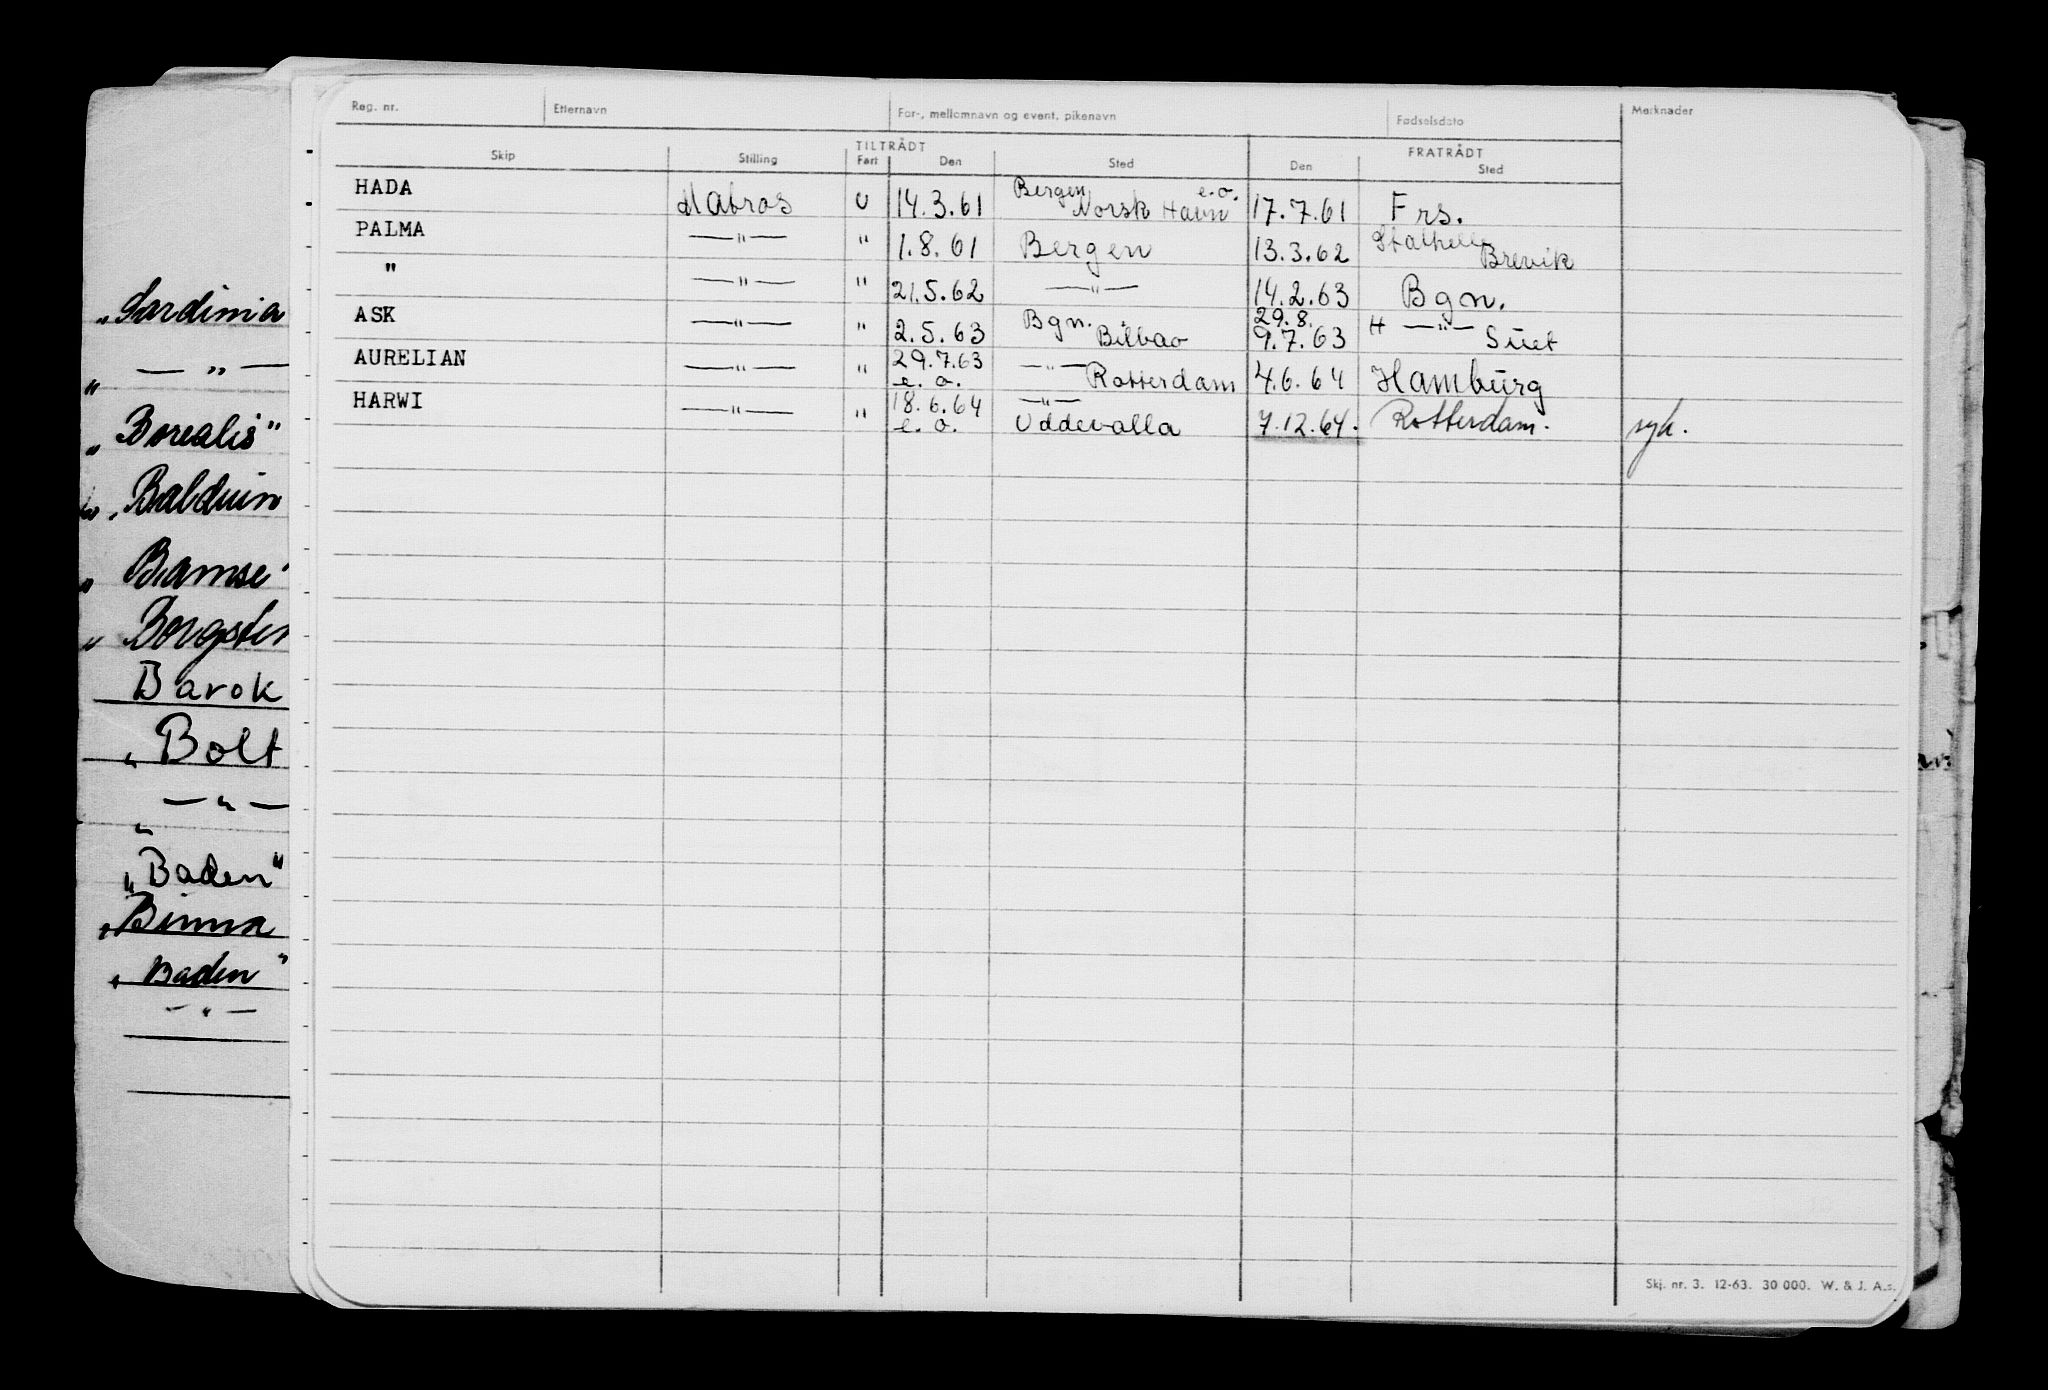 Reg. nr. Etternavn For-, mellomnavn og event. pikenavn Fødselsdato Merknader
TILTRÅDT FRATRÅDT
Skip Stilling Fart Den Sted Den Sted
HADA Matros U 14.3.61 Bergen e.o. Norsk Havn 17.7.61 Frs.
PALMA —"— " 1.8.61 Bergen 13.3.62 Stathelle Brevik
" —"— " 21.5.62 —"— 14.2.63 Bgn.
ASK —"— " 2.5.63 Bgn. Bilbao 29.8. 9.7.63 H —"— Suet
AURELIAN —"— " 29.7.63 e.o. —"— Rotterdam 4.6.64 Hamburg
HARWI —"— " 18.6.64 e.o. —"— Uddevalla 7.12.64. Rotterdam. syk.
"Sardinia
" — " —
"Borealis"
"Balduin
"Bamse"
"Borgsten
Barok
"Bolt
— " —
"
"Baden"
"Binna
"Baden"
— " —
Skj. nr. 3. 12-63. 30 000. W. & J. A.s.